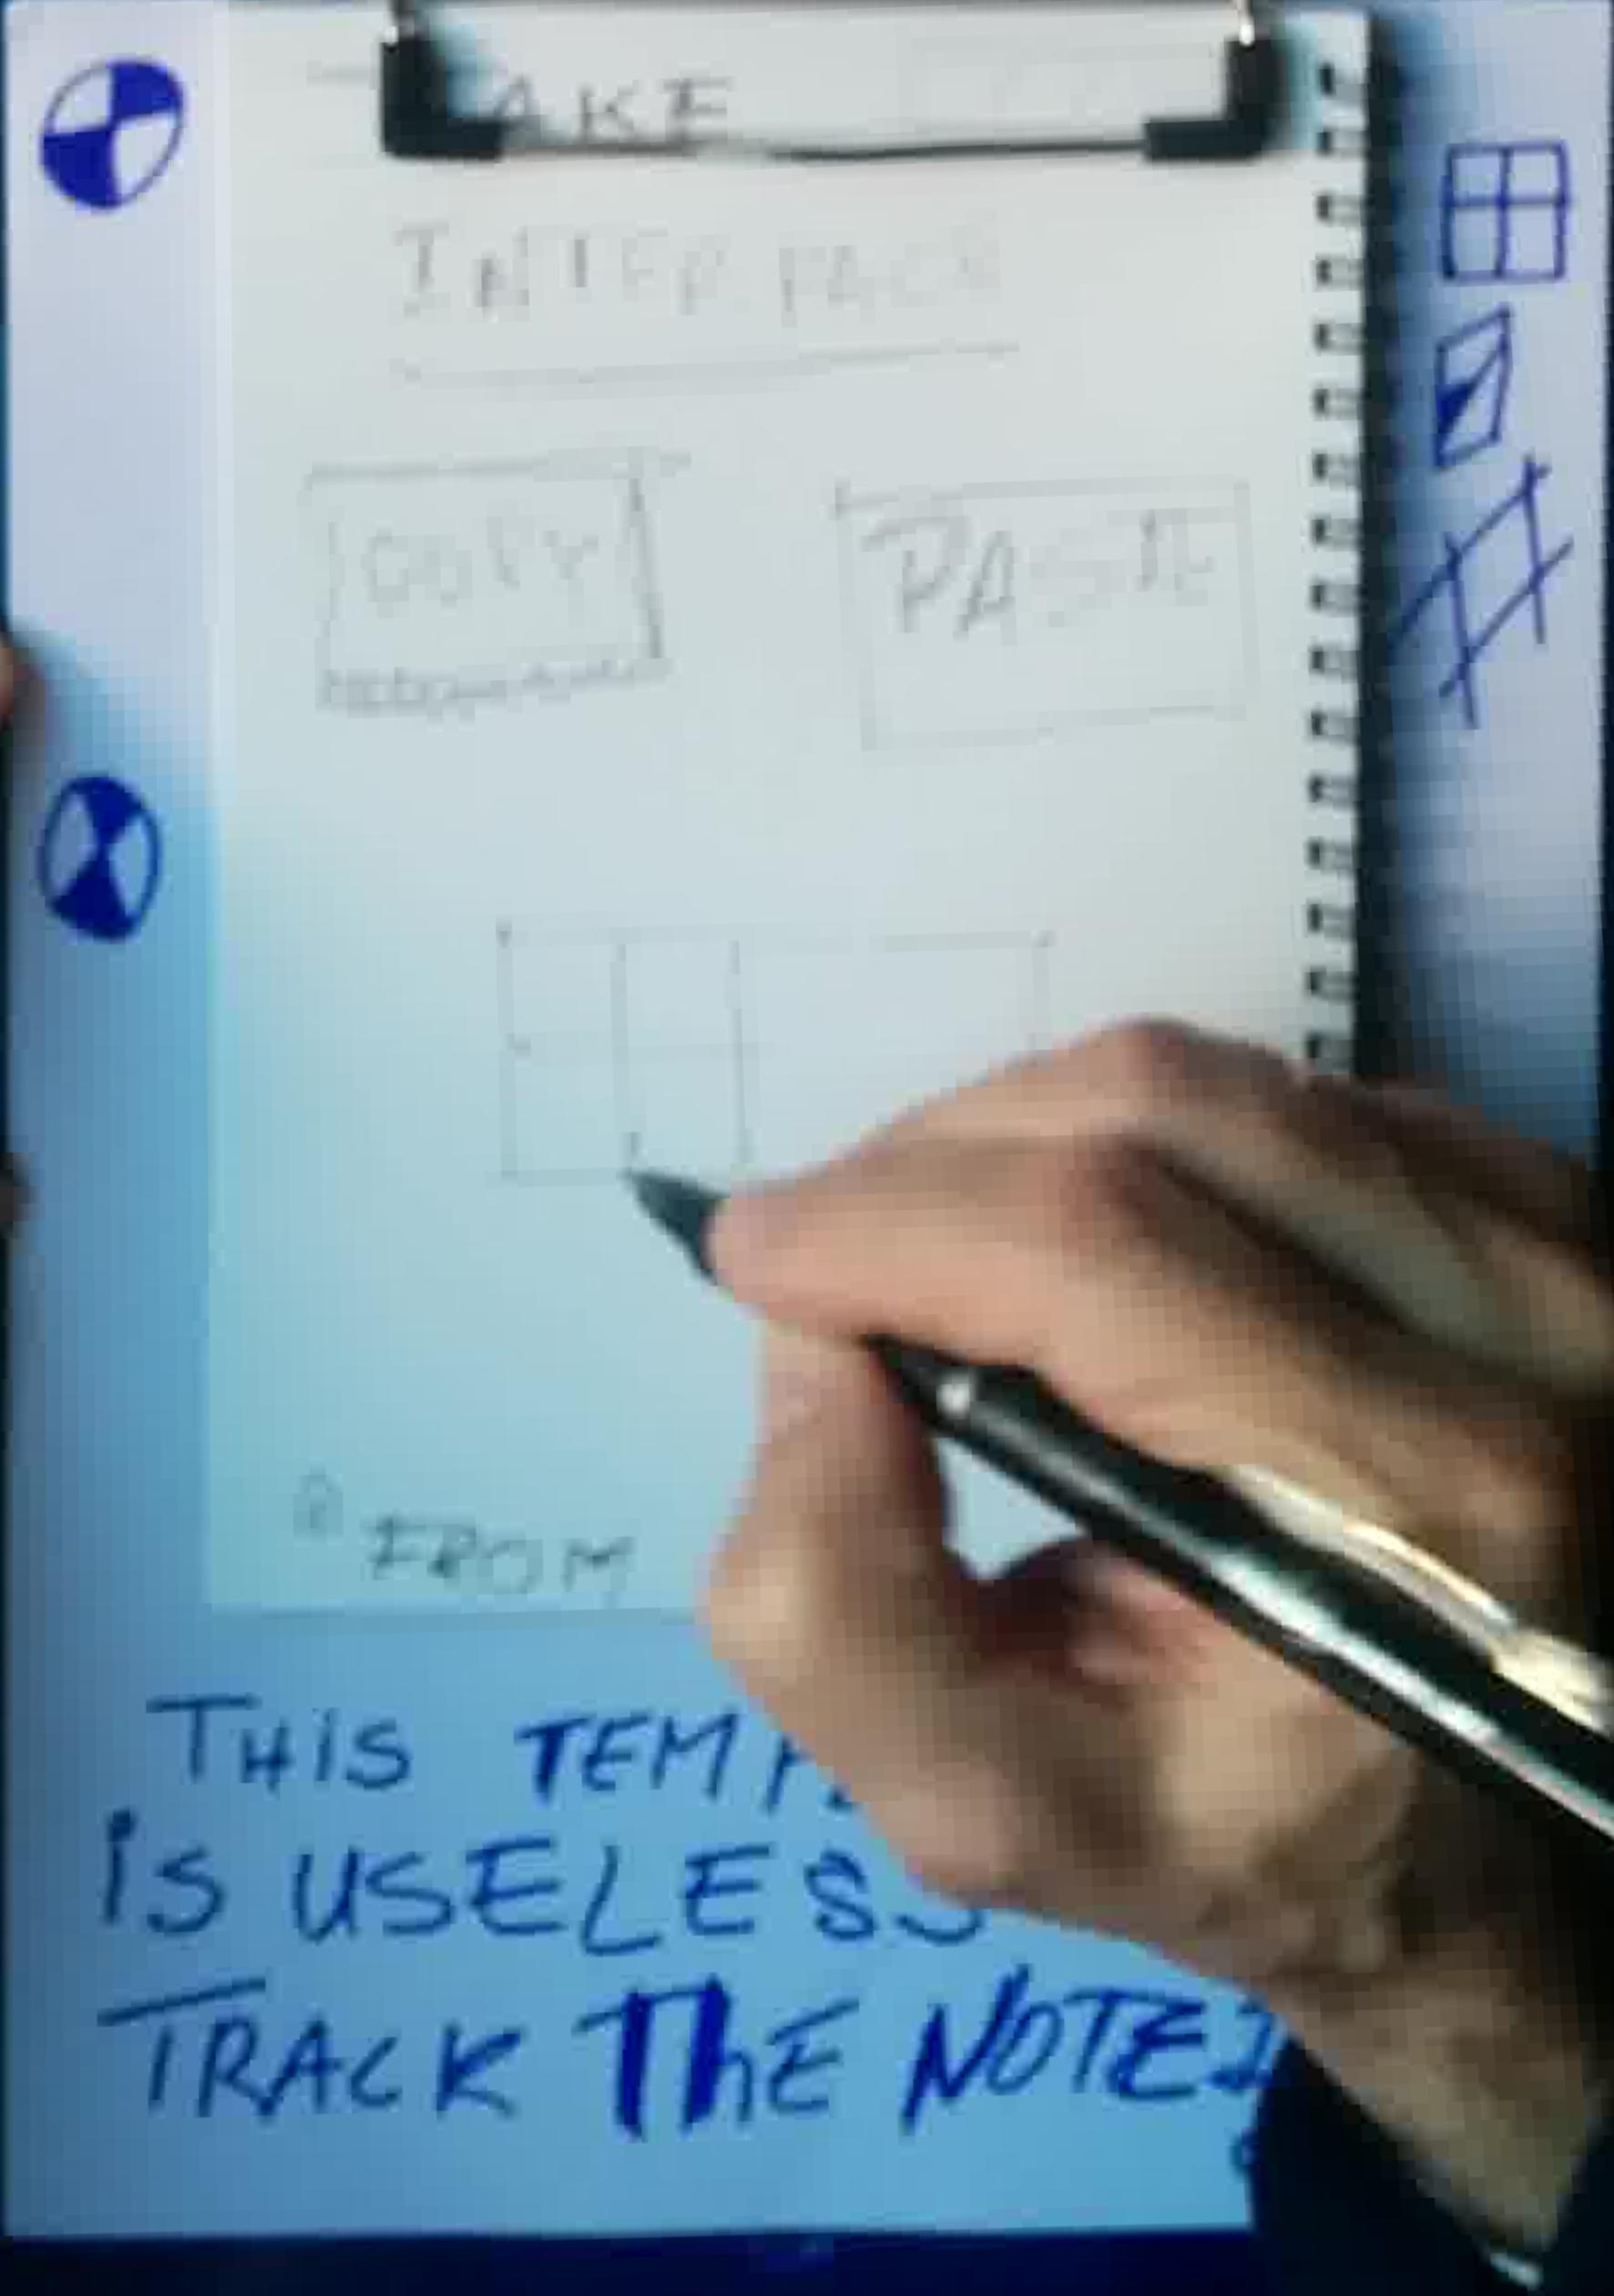 AKE
INTERFACE
COPY PASTE
FROM
THiS TEMP
iS USELESS
TRACK ThE NOTES